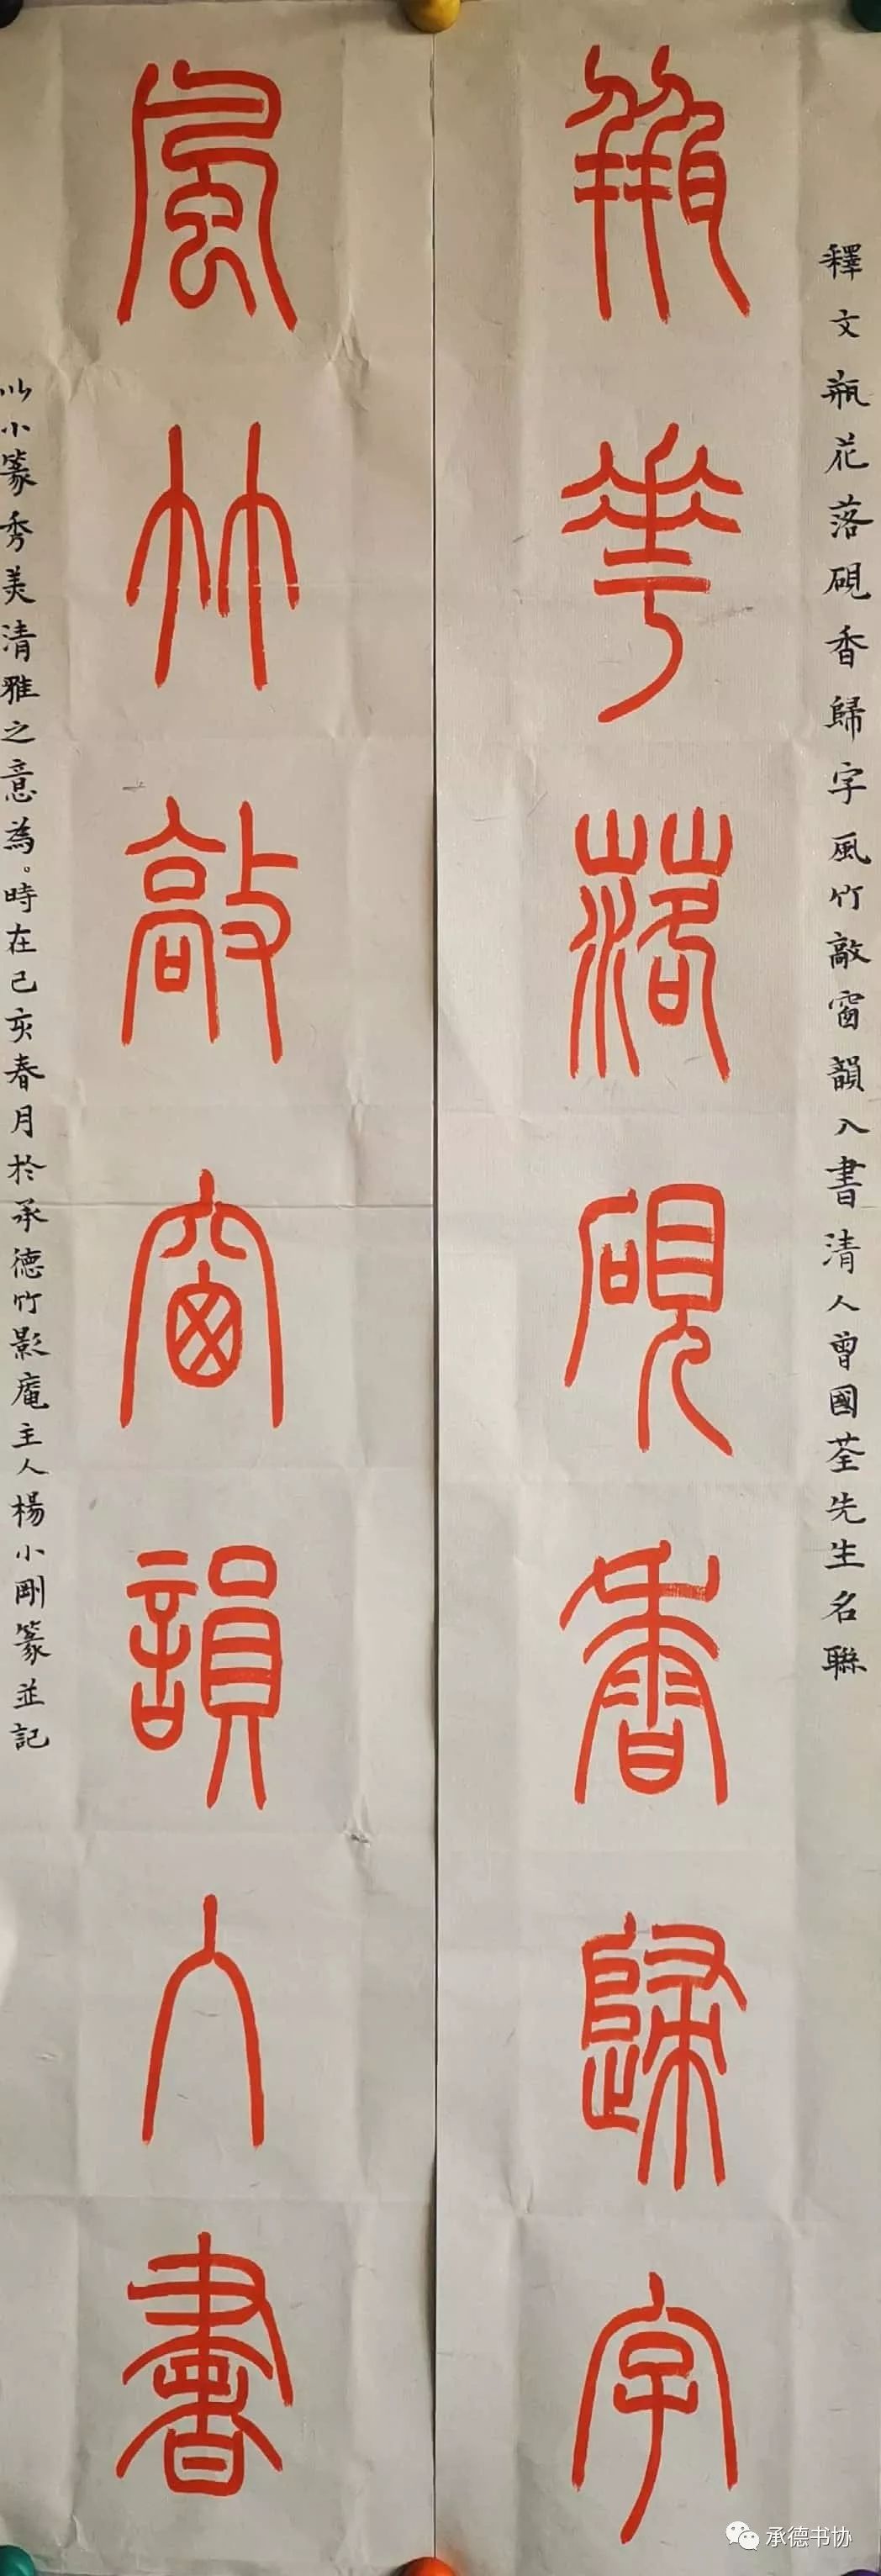 釋文瓶花落硯香歸字風竹敲窗韻入書清人曾國荃先生名聯
瓶華落硯香歸字
風竹敲窗韻入書
以小篆秀美清雅之意為。時在己亥春月於承德竹影庵主人楊小剛篆並記
承德书协